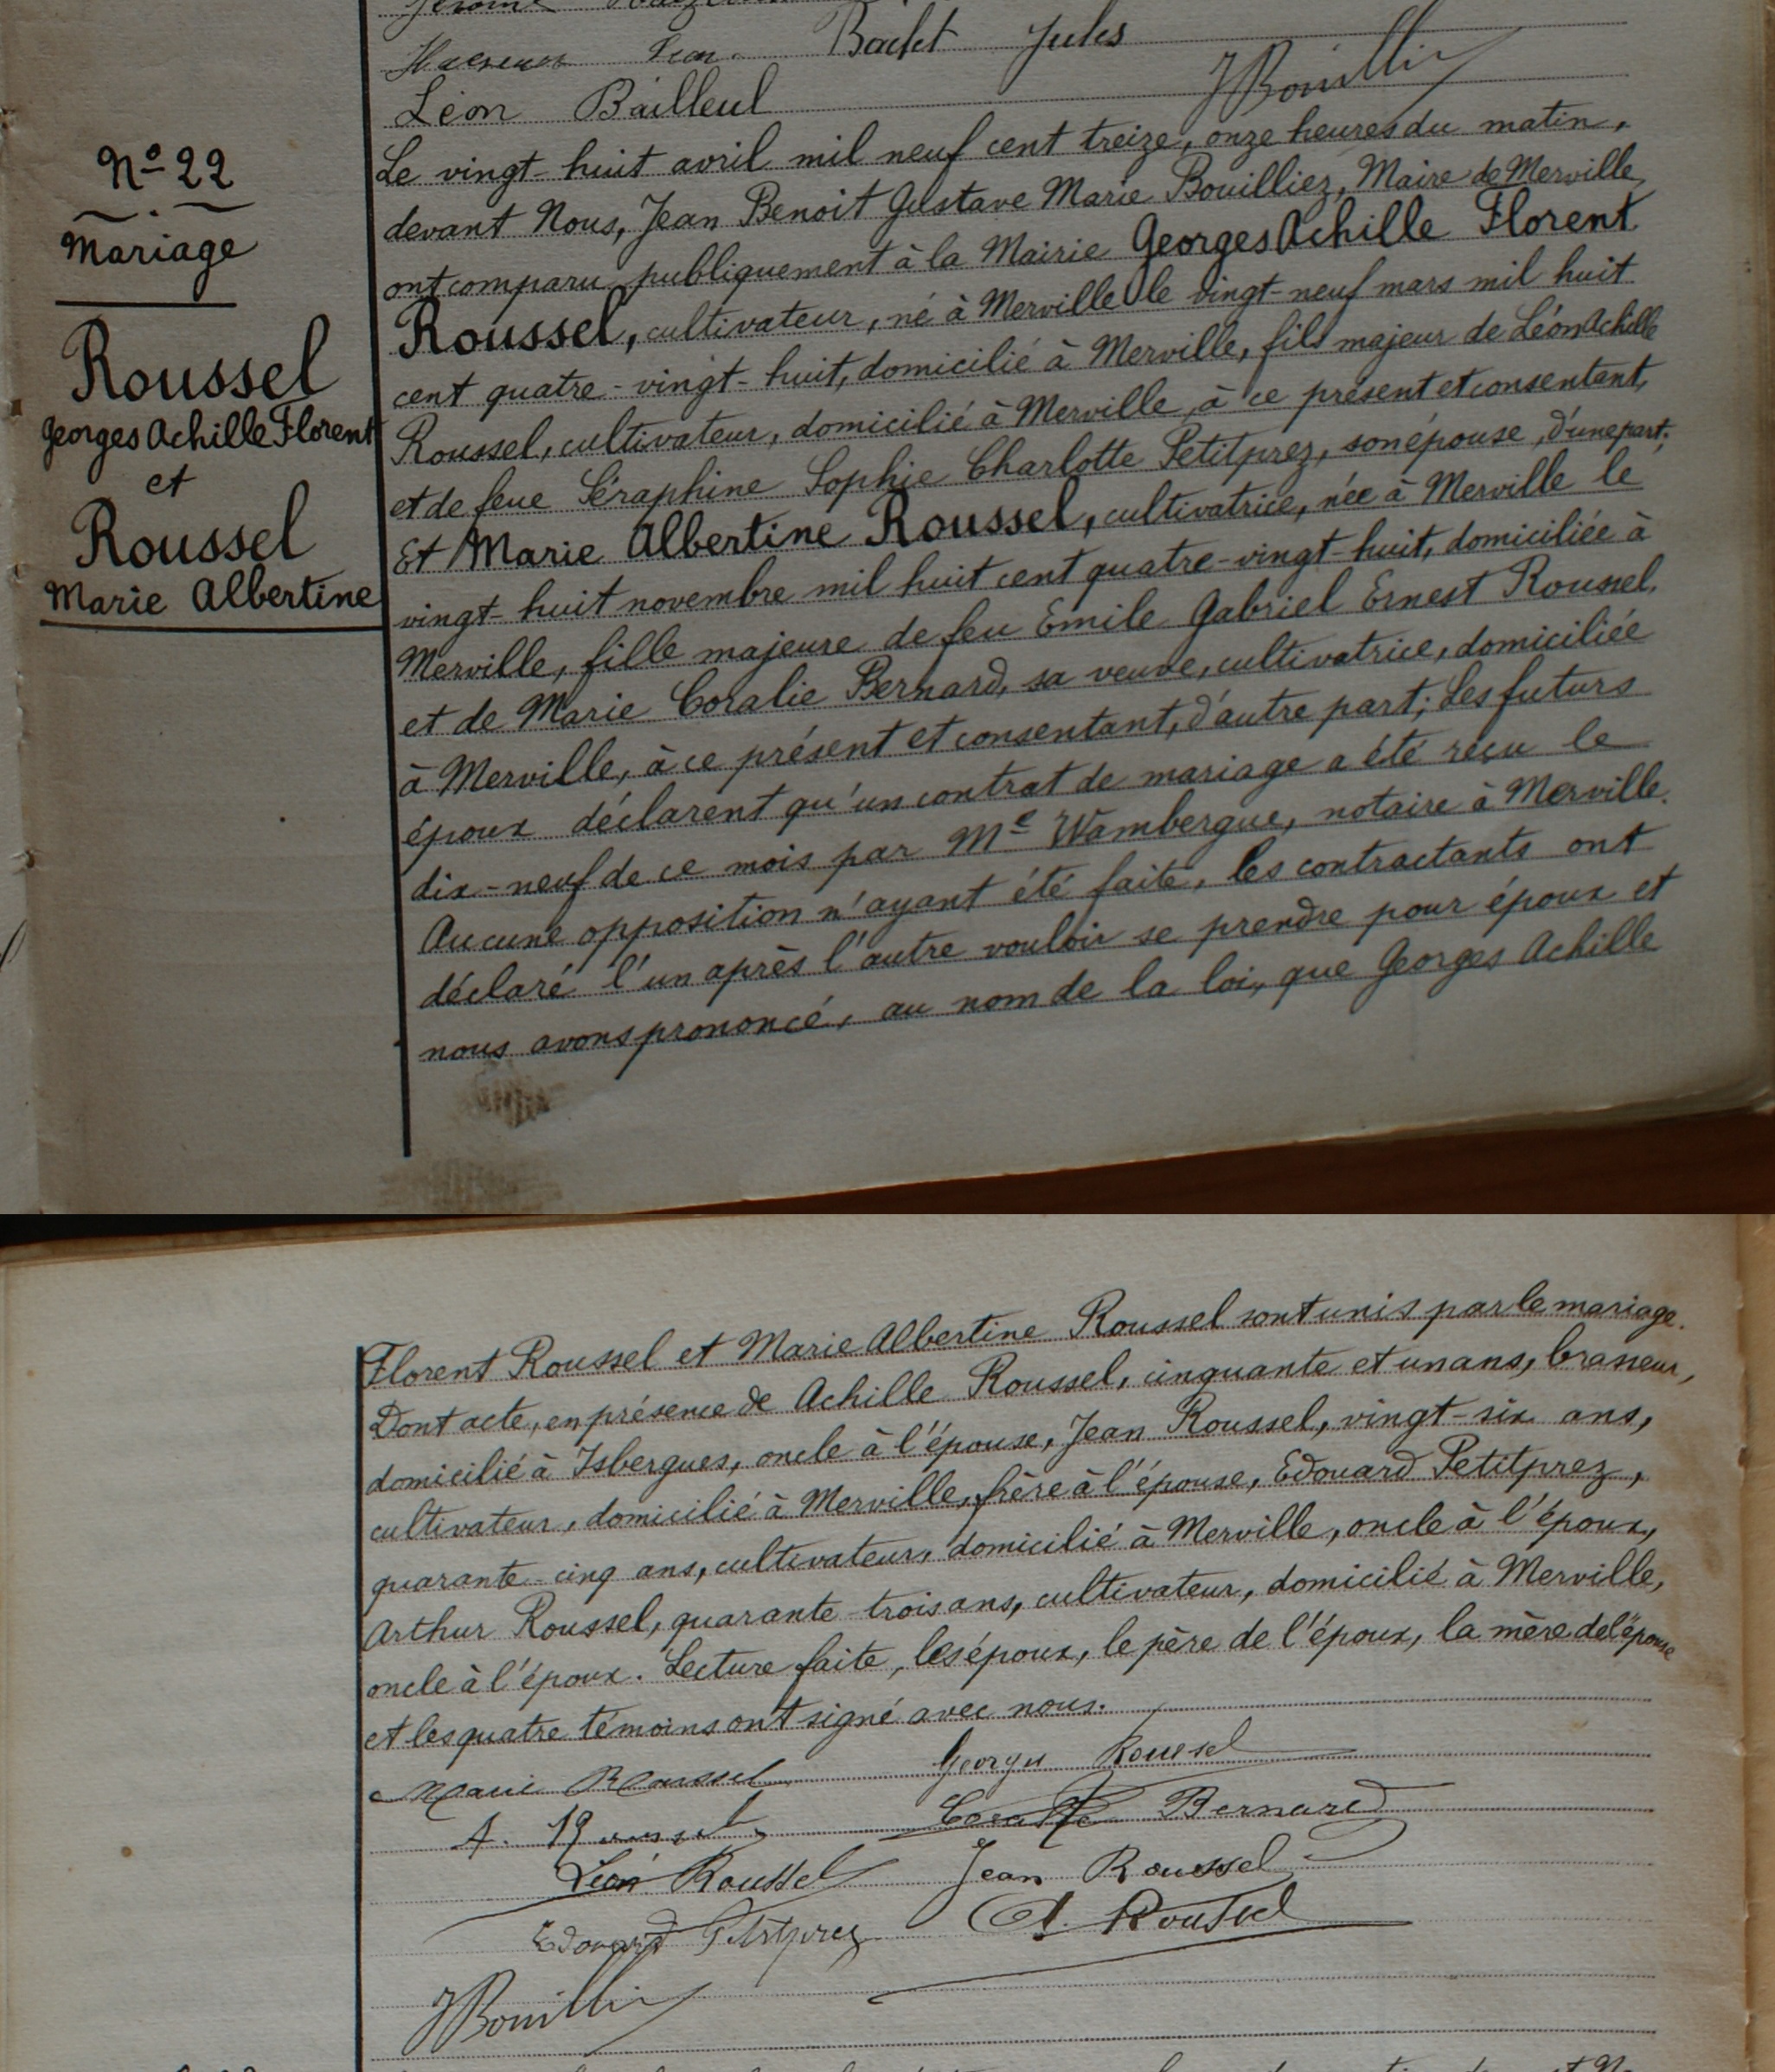 Jérôme
Jean. Badet Jules
Léon Bailleul JBouilliez
Nº 22
Mariage
Roussel
Georges Achille Florent
et
Roussel
Marie Albertine
Le vingt-huit avril mil neuf cent treize, onze heures du matin,
devant Nous, Jean Benoit Gustave Marie Bouilliez, Maire de Merville,
ont comparu publiquement à la Mairie Georges Achille Florent
Roussel, cultivateur, né à Merville le vingt-neuf mars mil huit
cent quatre-vingt-huit, domicilié à Merville, fils majeur de Léon Achille
Roussel, cultivateur, domicilié à Merville, à ce présent et consentant,
et de feue Séraphine Sophie Charlotte Petitprez, son épouse, d'une part;
Et Marie Albertine Roussel, cultivatrice, née à Merville le
vingt-huit novembre mil huit cent quatre-vingt-huit, domiciliée à
Merville, fille majeure de feu Emile Gabriel Ernest Roussel,
et de Marie Coralie Bernard, sa veuve, cultivatrice, domiciliée
à Merville, à ce présent et consentant, d'autre part; Les futurs
époux déclarent qu'un contrat de mariage a été reçu le
dix-neuf de ce mois par Me Wambergue, notaire à Merville.
Aucune opposition n'ayant été faite, les contractants ont
déclaré l'un après l'autre vouloir se prendre pour époux et
nous avons prononcé, au nom de la loi, que Georges Achille
Florent Roussel et Marie Albertine Roussel sont unis par le mariage.
Dont acte, en présence de Achille Roussel, cinquante et un ans, brasseur,
domicilié à Isbergues, oncle à l'épouse, Jean Roussel, vingt-six ans,
cultivateur, domicilié à Merville, frère à l'épouse, Edouard Petitprez,
quarante-cinq ans, cultivateur, domicilié à Merville, oncle à l'époux,
Arthur Roussel, quarante-trois ans, cultivateur, domicilié à Merville,
oncle à l'époux. Lecture faite, les époux, le père de l'époux, la mère de l'épouse
et les quatre témoins ont signé avec nous.
Marie Roussel Georges Roussel
A. Roussel Coralie Bernard
Léon Roussel Jean Roussel
Edouard Petitprez A. Roussel
JBouilliez